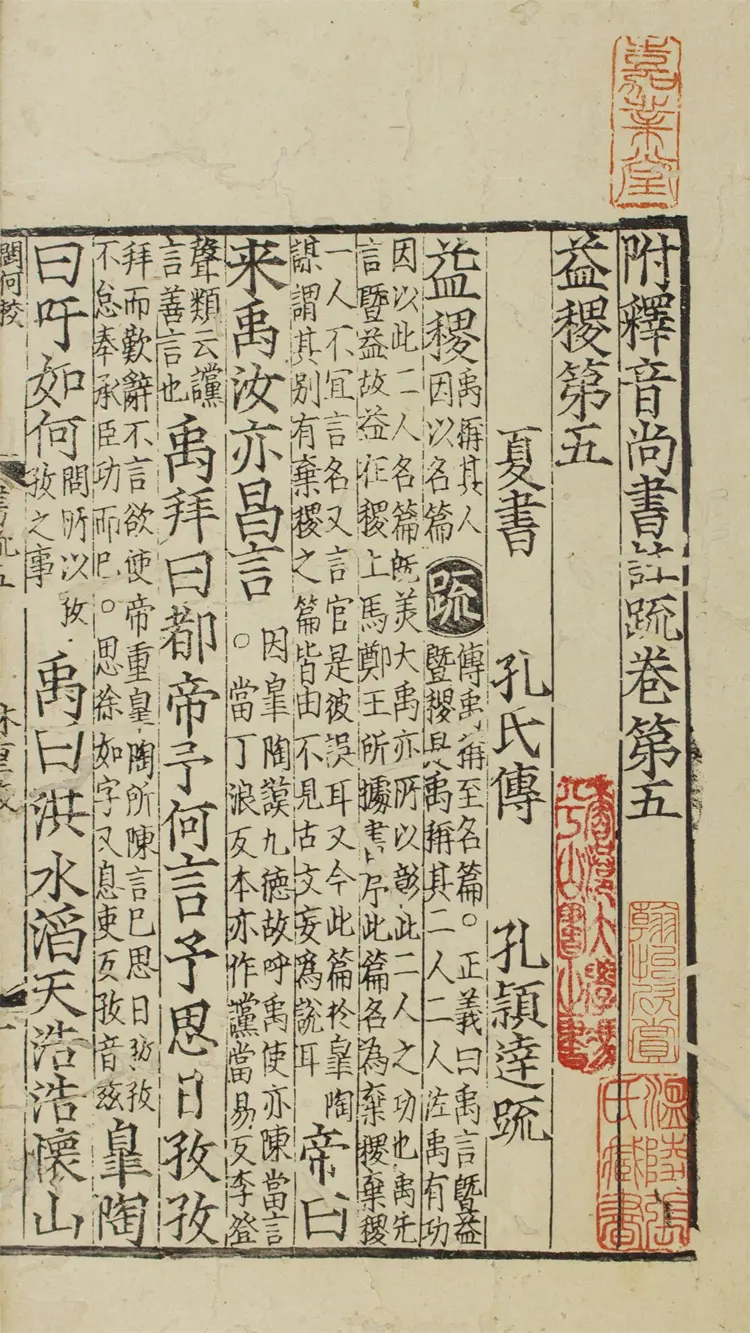 附釋音尚書註疏卷第五
益稷第五
夏書 孔氏傳 孔頴達疏
益稷
禹稱其人
因以名篇
疏
傳禹稱至名篇。正義曰禹言曁益
曁稷是禹稱其二人二人佐禹有功
因以此二人名篇旣美大禹亦所以彰此二人之功也禹先
言曁益故益在稷上馬鄭王所據書序此篇名為棄稷棄稷
一人不宜言名又言官是彼誤耳又今此篇於皐陶
謨謂其别有棄稷之篇皆由不見古文妄爲說耳
帝曰
来禹汝亦昌言
因皐陶謨九德故呼禹使亦陳當言
。當丁浪反本亦作讜當易反李登
聲類云讜
言善言也
禹拜曰都帝予何言予思日孜孜
拜而歎辭不言欲使帝重皐陶所陳言已思日孜孜
不怠奉承臣功而已。思徐如字又息吏反孜音兹
皐陶
曰吁如何
問所以孜
孜之事
禹曰洪水滔天浩浩懷山
嘉業堂
翰怡欣賞
溫陵張
氏藏書